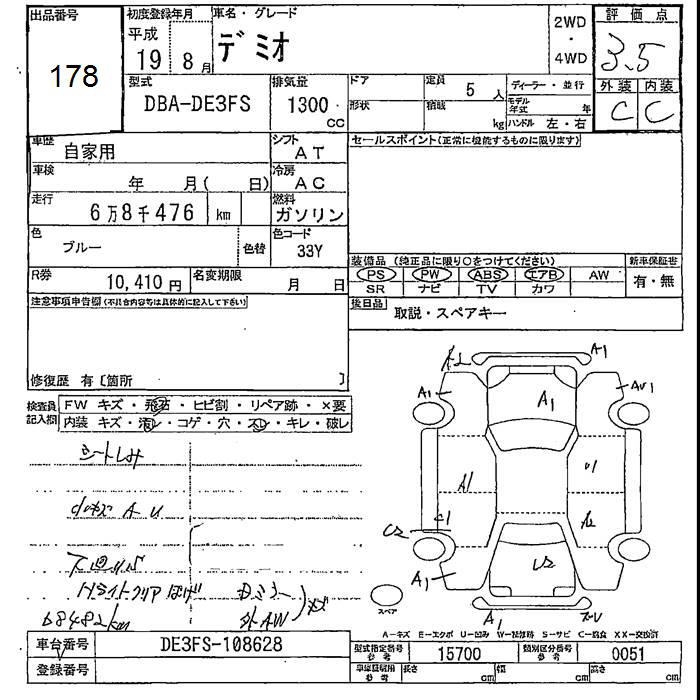 出品番号 初度登録年月 車名・グレード 2WD ・ 4WD 評価点
178 平成 19 8月 デミオ 3.5
型式 排気量 ドア 定員 5人 ディーラー・並行 外装 内装
DBA-DE3FS 1300 CC 形状 積載 kg モデル年式 年 C C
ハンドル 左・右
車歴 自家用 シフト AT セールスポイント(正常に機能するものに限ります)
車検 年 月( 日) 冷房 AC
走行 6万8千476 km 燃料 ガソリン
色 ブルー 色替 色コード 33Y
装備品 (純正品に限り○をつけてください) 新車保証書
R券 10,410円 名変期限 月 日 PS PW ABS エアB AW 有・無
SR ナビ TV カワ
注意事項申告欄(不具合内容等は具体的に記入して下さい) 後日品 取説・スペアキー
修復歴 有〔箇所 〕
検査員記入欄 FW キズ・飛石・ヒビ割・リペア跡・×要
内装 キズ・汚レ・コゲ・穴・スレ・キレ・破レ
A1
A1 AV1
A1
A1
シートしみ
A U
C2
A1
Hライトクリアはげ
68482km
スペア
A1
A-キズ E-エクボ U-凹み W-補修跡 S-サビ C-腐食 XX-交換済
車台番号 DE3FS-108628 型式指定番号 参考 15700 類別区分番号 参考 0051
登録番号 車車証記用 参考 長さ cm 幅 cm 高さ cm